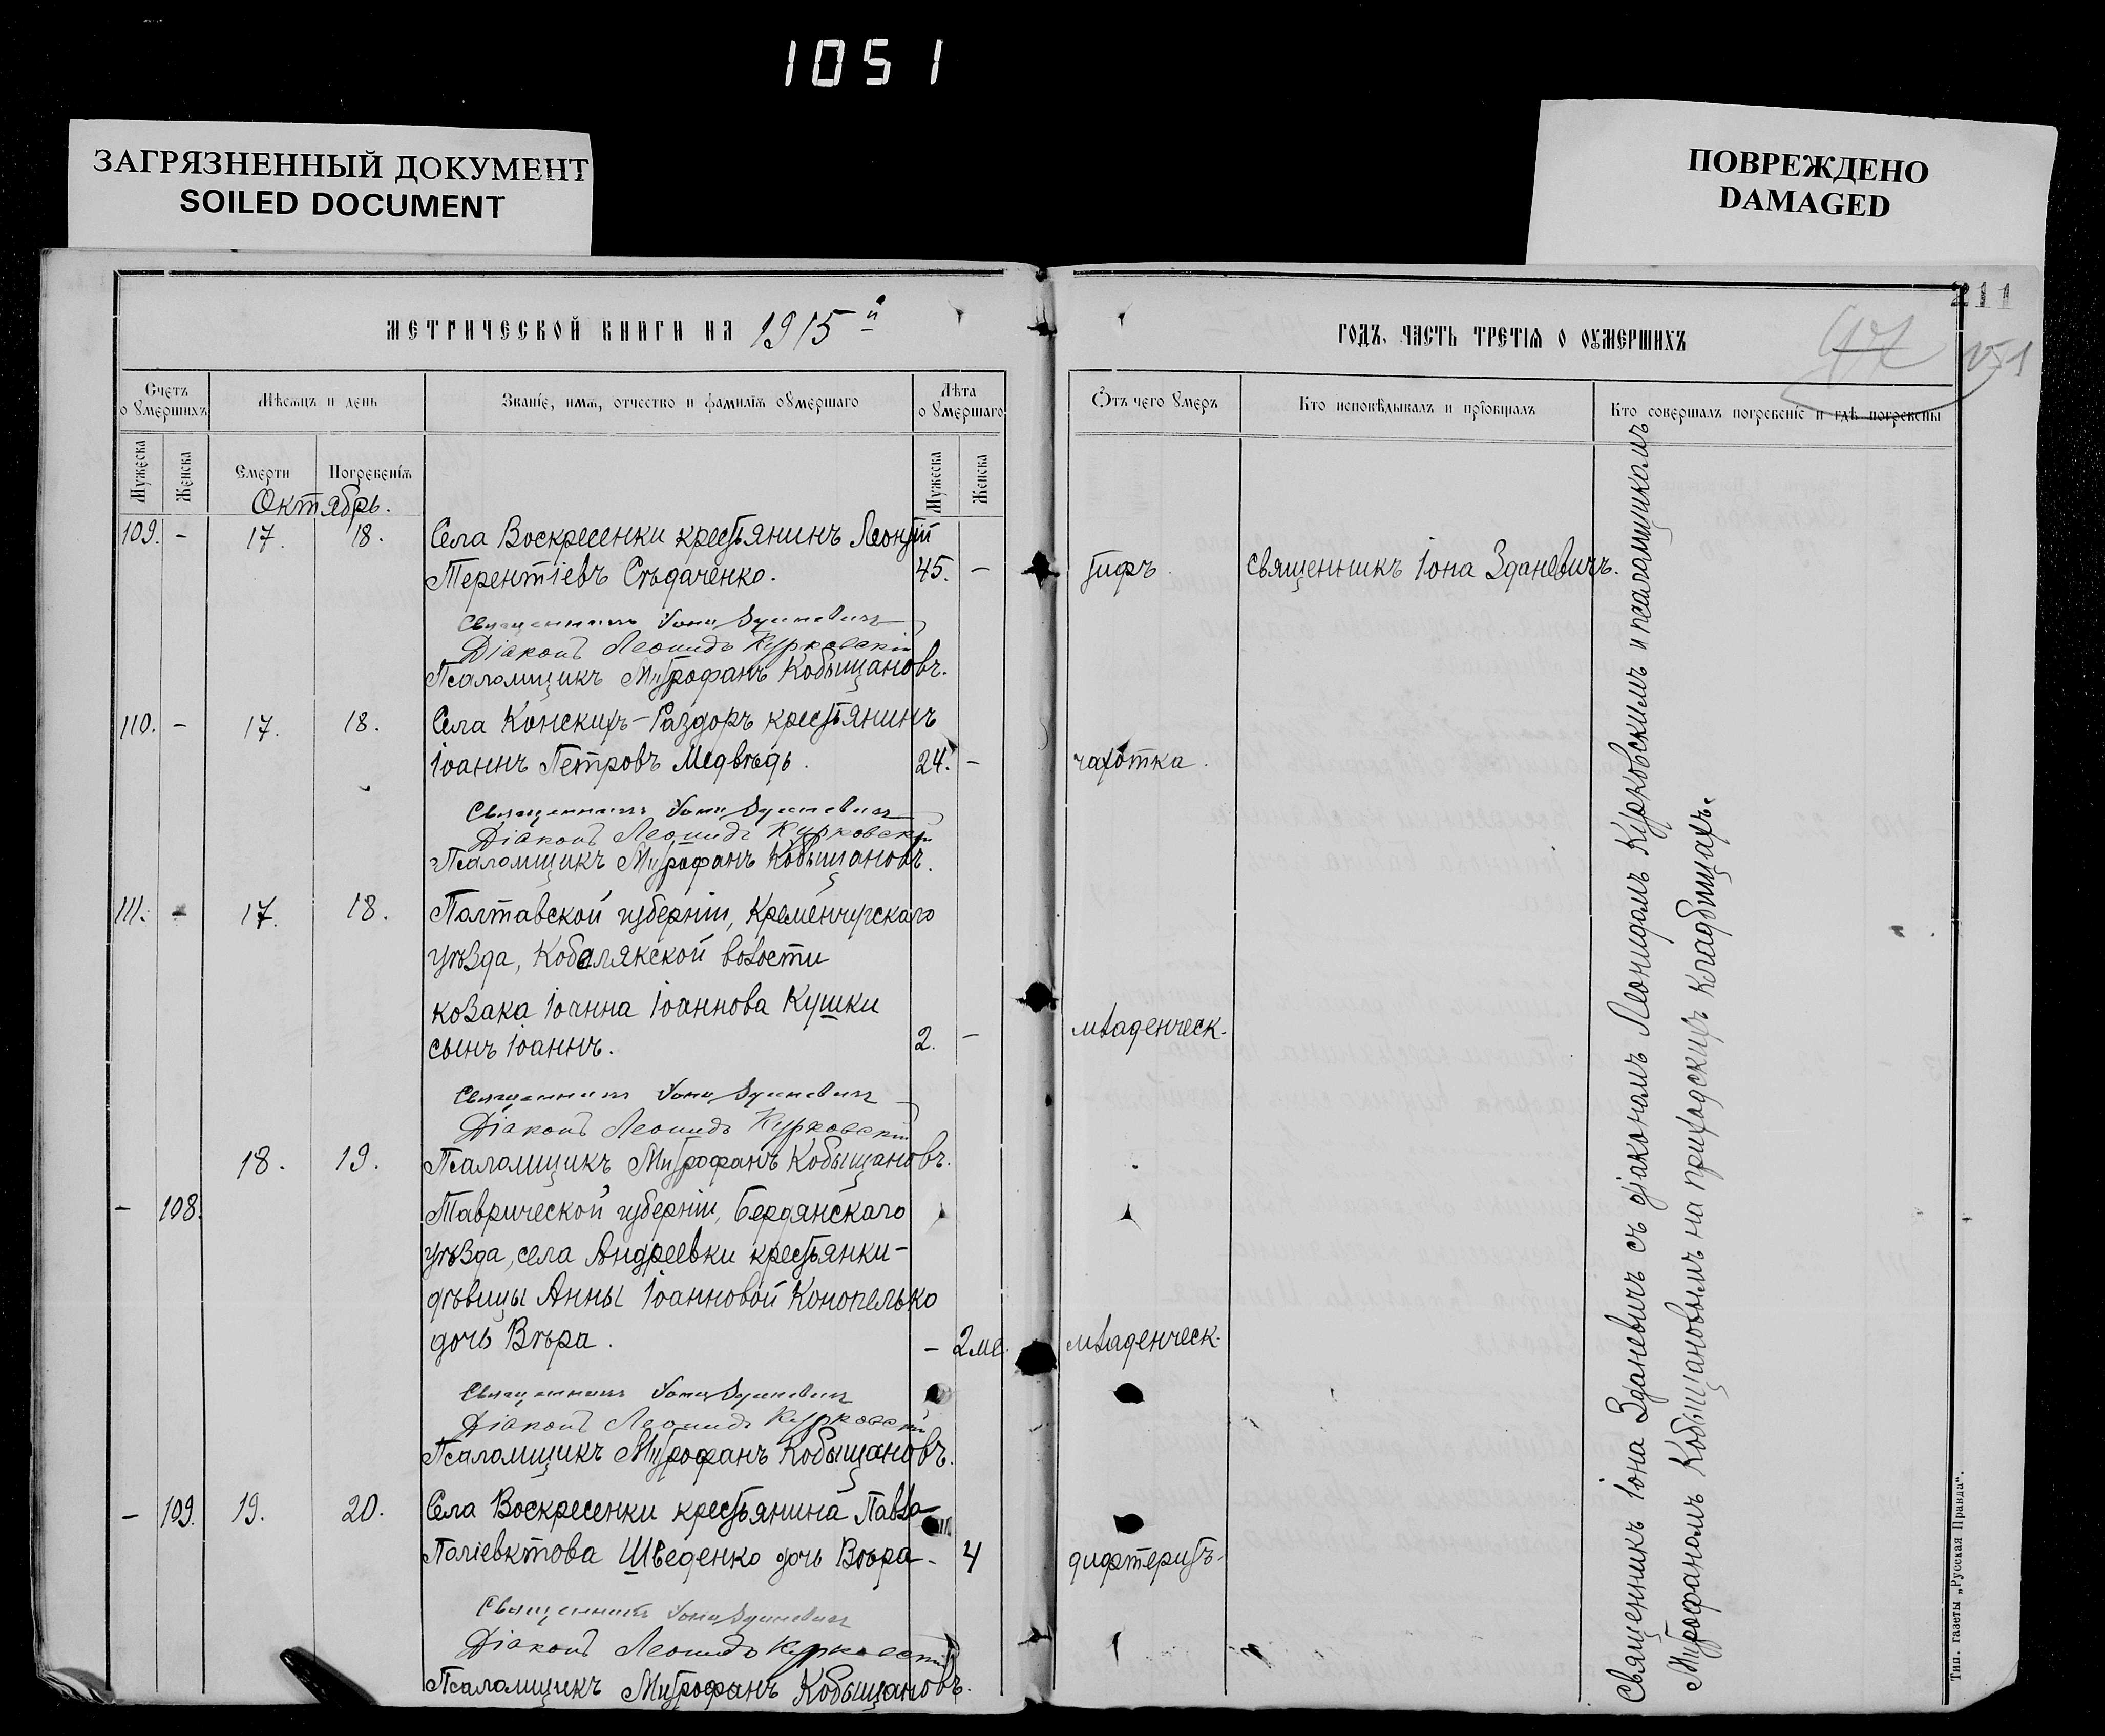 1051
ЗАГРЯЗНЕННЫЙ ДОКУМЕНТ
SOILED DOCUMENT
ПОВРЕЖДЕНО
DAMAGED
211
МЕТРИЧЕСКОЙ КНИГИ НА 1915й
ГОДЪ, ЧАСТЬ ТРЕТІЯ О ОУМЕРШИХЪ
47
151
Счетъ о умершихъ
Мѣсяцъ и день
Званіе, имя, отчество и фамилія оумершаго
Лѣта о умершаго
Отъ чего умеръ
Кто исповѣдывалъ и пріобщалъ
Кто совершалъ погребеніе и гдѣ погребены
Мужеска
Женска
Смерти
Погребенія
Мужеска
Женска
Октябрь.
109. - 17. 18. Села Воскресенки крестьянинъ Леонтій
Терентіевъ Сѣдаченко. 45. - тифъ священникъ Іона Зданевичъ.
Священникъ Іона Зданевичъ
Діаконъ Леонидъ Курковскій
Псаломщикъ Митрофанъ Кобыщановъ.
110. - 17. 18. Села Конскихъ-Раздоръ крестьянинъ
Іоаннъ Петровъ Медвѣдь. 24. - чахотка.
Священникъ Іона Зданевичъ
Діаконъ Леонидъ Курковскій
Псаломщикъ Митрофанъ Кобыщановъ.
111. - 17. 18. Полтавской губерніи, Кременчугскаго
уѣзда, Кобелякской волости
козака Іоанна Іоаннова Кушки
сынъ Іоаннъ. 2. - младенческ.
Священникъ Іона Зданевичъ
Діаконъ Леонидъ Курковскій
18. 19. Псаломщикъ Митрофанъ Кобыщановъ.
- 108. Таврической губерніи, Бердянскаго
уѣзда, села Андреевки крестьянки-
дѣвицы Анны Іоанновой Конопелько
дочь Вѣра. - 2 ме. младенческ.
Священникъ Іона Зданевичъ
Діаконъ Леонидъ Курковскій
Псаломщикъ Митрофанъ Кобыщановъ.
- 109. 19. 20. Села Воскресенки крестьянина Павла
Поліевктова Шведенко дочь Вѣра - 4 дифтеритъ.
Священникъ Іона Зданевичъ
Діаконъ Леонидъ Курковскій
Псаломщикъ Митрофанъ Кобыщановъ.
Священникъ Іона Зданевичъ съ діакономъ Леонидомъ Курковскимъ и псаломщикомъ
Митрофаномъ Кобыщановымъ на приходскихъ кладбищахъ.
Тип. газеты „Русская Правда".